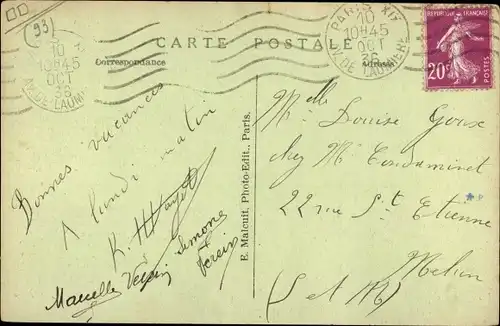 (93)
PARIS XIX
10
10H45
OCT
36
AV. DE LAUMIERE
10
10H45
OCT
36
AV. DE LAUMIERE
RÉPUBLIQUE FRANÇAISE
20c
POSTES
CARTE POSTALE
Correspondance
Adresse
Bonnes vacances
A lundi matin
Marcelle
Simone
E. Malcuit, Photo-Edit., Paris.
Melle Louise Goux
chez Mr
22 rue St Etienne
Melun
(S et M)